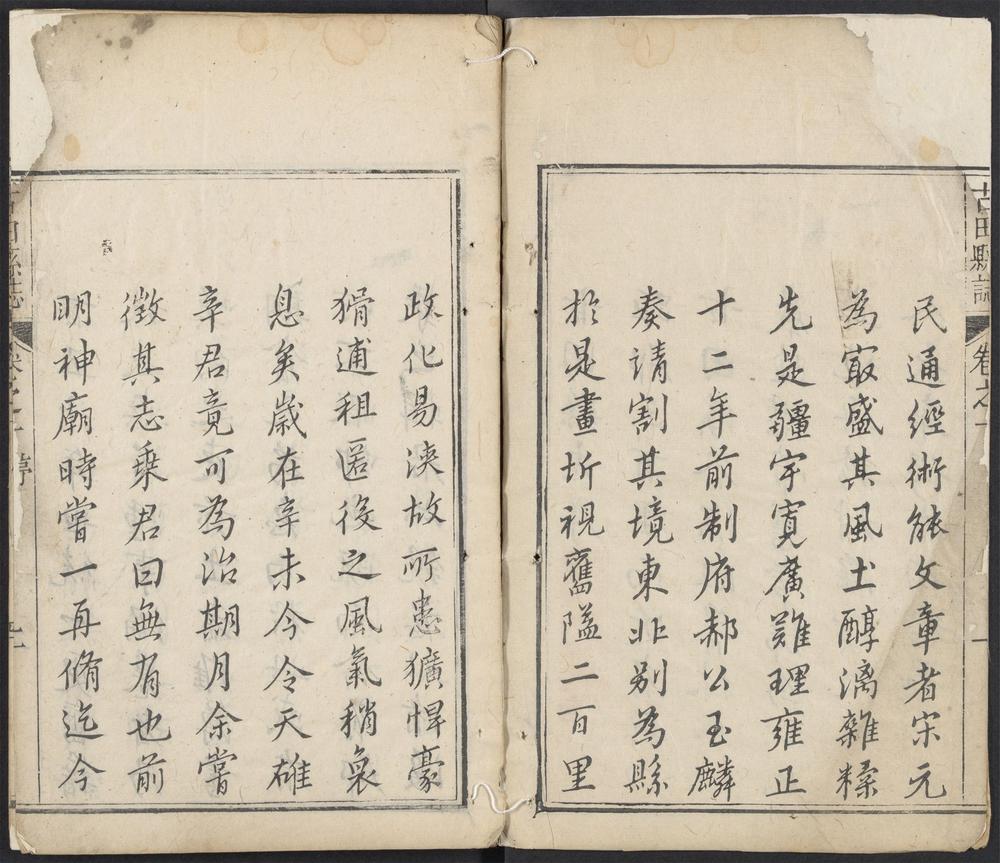 古田縣誌 卷之一 一
民通經術能文章者宋元
為㝡盛其風土醇漓雜糅
先是疆宇寬廣難理雍正
十二年前制府郝公玉麟
奏請割其境東北別為縣
扵是畫圻視舊隘二百里
政化易浹故所患獷悍豪
猾逋租匿後之風氣稍衰
息矣歲在辛未今令天雄
辛君竟可為治期月余嘗
徵其志乗君曰無有也前
明神廟時嘗一再脩迄今
縣誌 序